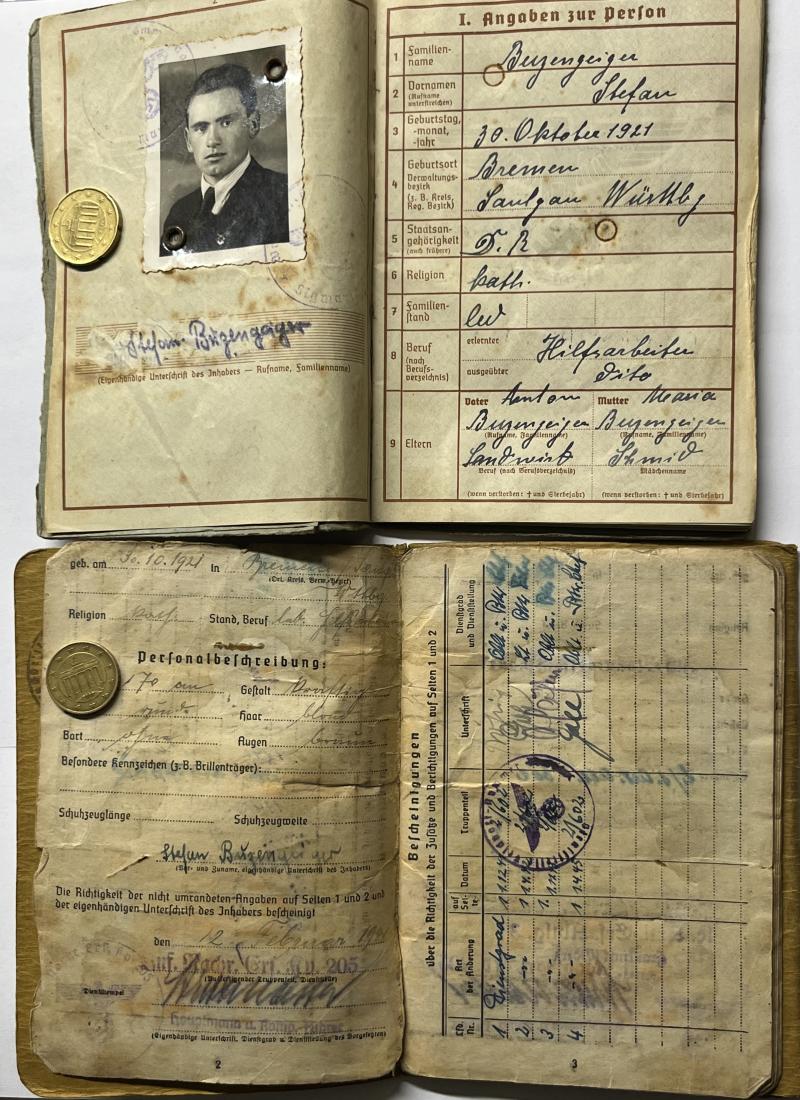 I. Angaben zur Person
1 Familienname Buzengeiger
2 Vornamen (Rufname unterstreichen) Stefan
3 Geburtstag, -monat, -jahr 30. Oktober 1921
4 Geburtsort Bremen
Verwaltungsbezirk (z. B. Kreis, Reg. Bezirk) Saulgau Württbg
5 Staatsangehörigkeit (auch frühere) D. R
6 Religion kath.
7 Familienstand led
8 Beruf (nach Berufsverzeichnis) erlernter Hilfsarbeiter
ausgeübter dito
9 Eltern
Vater Anton Mutter Maria
Buzengeiger Buzengeiger
(Rufname, Familienname) (Rufname, Familienname)
Landwirt Schmid
Beruf (nach Berufsverzeichnis) Mädchenname
(wenn verstorben: † und Sterbejahr) (wenn verstorben: † und Sterbejahr)
Stefan Buzengeiger
(Eigenhändige Unterschrift des Inhabers — Rufname, Familienname)
geb. am 30.10.1921 in Bremen
(Ort, Kreis, Verw.-Bezirk)
Religion kath. Stand, Beruf led.
Personalbeschreibung:
170 cm Gestalt kräftig
rund Haar blond
Bart ohne Augen braun
Besondere Kennzeichen (z. B. Brillenträger):
Schuhzeuglänge Schuhzeugweite
Stefan Buzengeiger
(Vor- und Zuname, eigenhändige Unterschrift des Inhabers)
Die Richtigkeit der nicht umrandeten Angaben auf Seiten 1 und 2 und
der eigenhändigen Unterschrift des Inhabers bescheinigt
den 12. Februar
205
(Ausfertigender Truppenteil, Dienststelle)
Dienststempel
Hauptmann u. Komp. Führer
(Eigenhändige Unterschrift, Dienstgrad u. Dienststellung des Vorgesetzten)
2
Bescheinigungen
über die Richtigkeit der Zusätze und Berichtigungen auf Seiten 1 und 2
Lfd. Nr. Art der Änderung auf Seite Datum Truppenteil Unterschrift Dienstgrad und Dienststellung
1 Dienstgrad 1
2 -"- 1
3 -"- 1
4 -"- 1 1.4.45 2/602
3